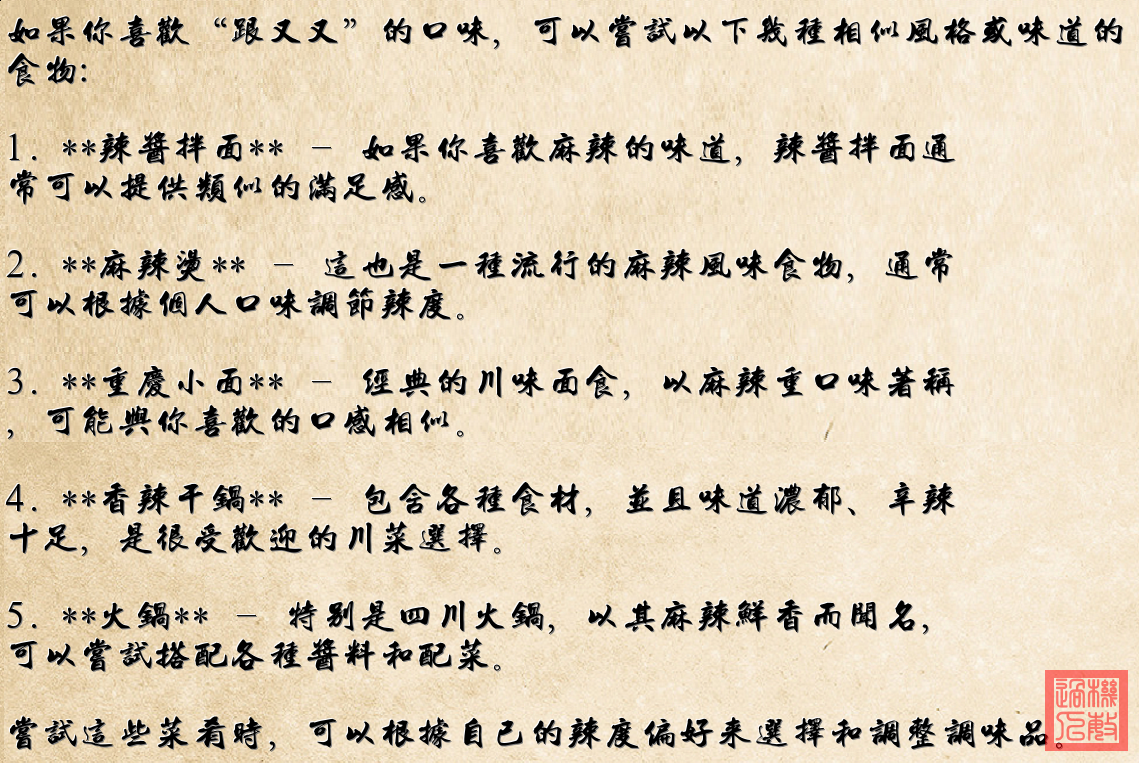 如果你喜歡“跟叉叉”的口味，可以嘗試以下幾種相似風格或味道的
食物：
1. **辣醬拌面** － 如果你喜歡麻辣的味道，辣醬拌面通
常可以提供類似的滿足感。
2. **麻辣燙** － 這也是一種流行的麻辣風味食物，通常
可以根據個人口味調節辣度。
3. **重慶小面** － 經典的川味面食，以麻辣重口味著稱
，可能與你喜歡的口感相似。
4. **香辣干鍋** － 包含各種食材，並且味道濃郁、辛辣
十足，是很受歡迎的川菜選擇。
5. **火鍋** － 特別是四川火鍋，以其麻辣鮮香而聞名，
可以嘗試搭配各種醬料和配菜。
嘗試這些菜肴時，可以根據自己的辣度偏好來選擇和調整調味品。